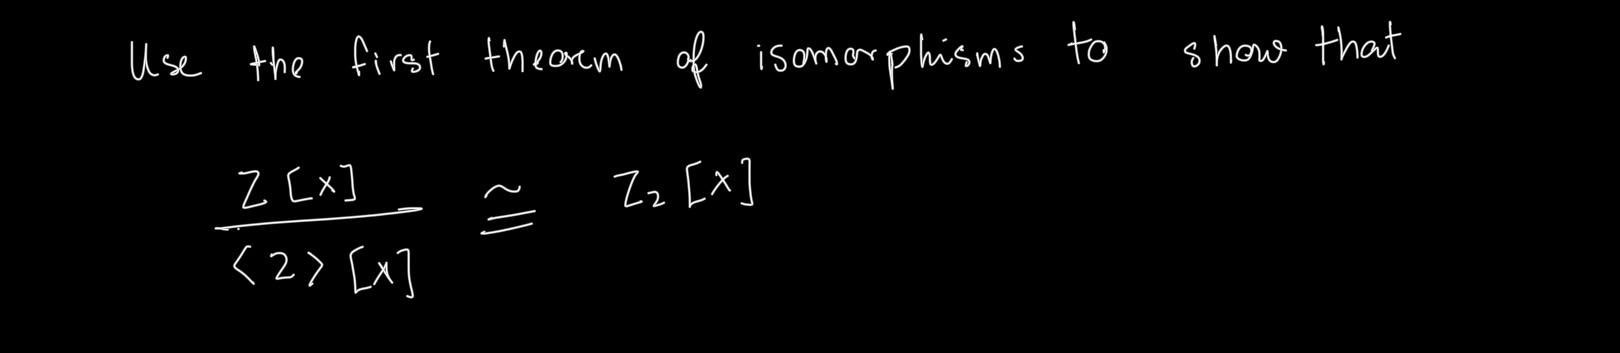 Use the first theorem of isomorphisms to show that
Z[x] / <2>[x] ≅ Z₂[x]